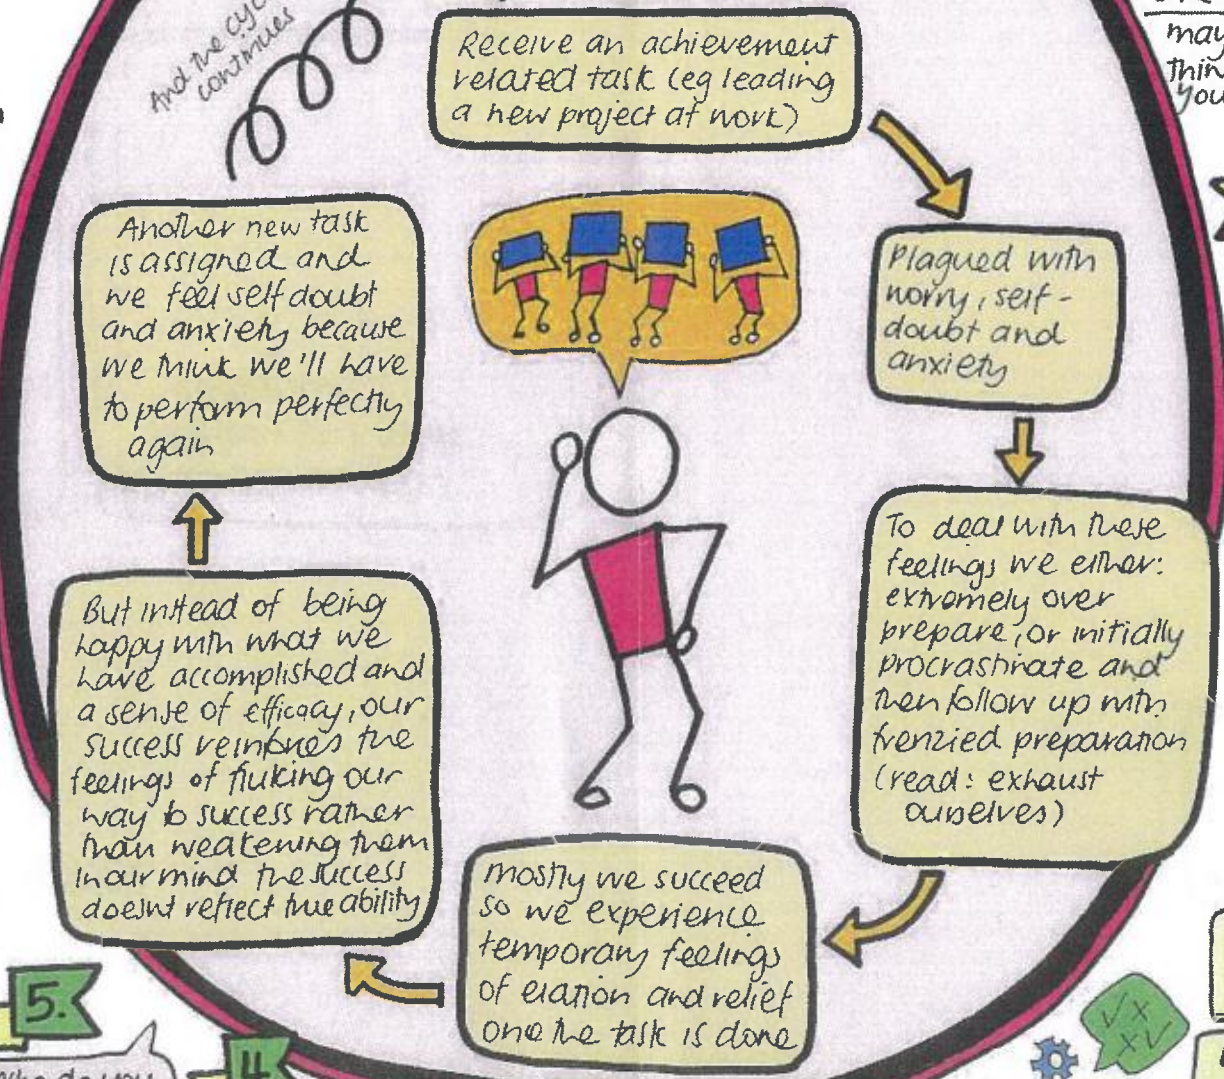 And the cyc
continues
Receive an achievement
related task (eg leading
a new project at work)
may
thin
you
Plagued with
worry, self-
doubt and
anxiety
To deal with these
feelings we either:
extremely over
prepare, or initially
procrastinate and
then follow up with
frenzied preparation
(read: exhaust
ourselves)
mostly we succeed
so we experience
temporary feelings
of elation and relief
one the task is done
But instead of being
happy with what we
have accomplished and
a sense of efficacy, our
success reinforces the
feelings of fluking our
way to success rather
than weakening them
In our mind the success
doesnt reflect true ability
Another new task
is assigned and
we feel self doubt
and anxiety because
we think we'll have
to perform perfectly
again
5.
4
do you